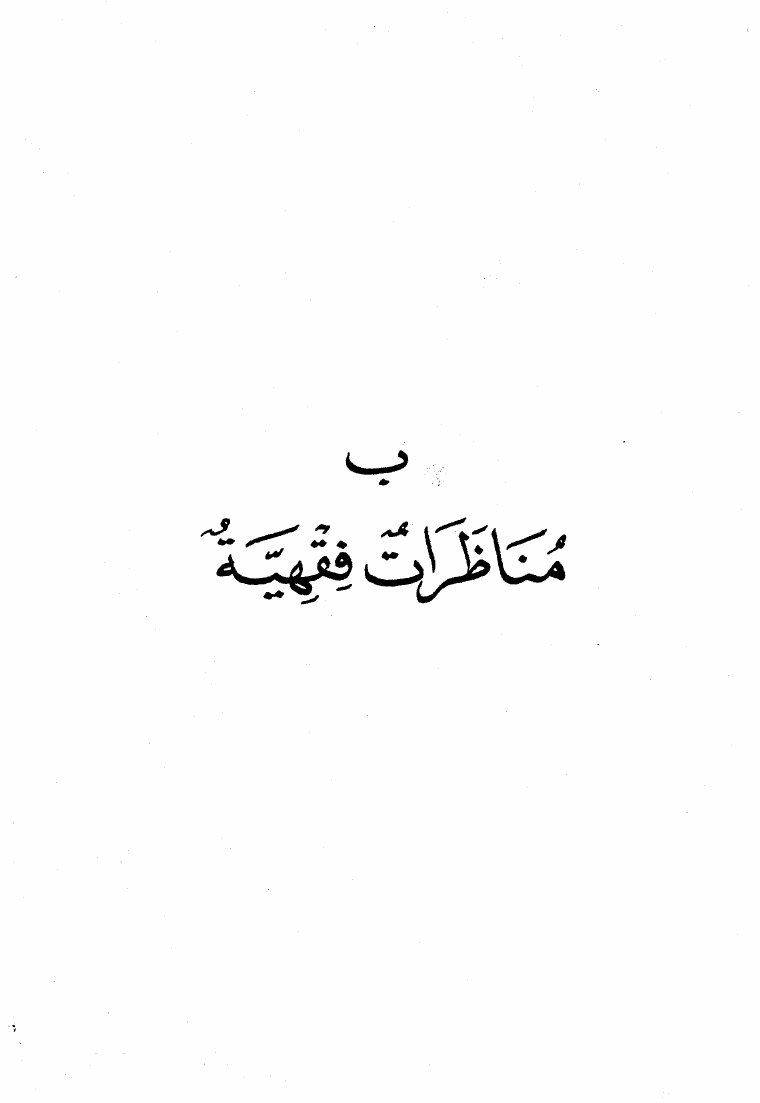 ب
مُنَاظَرَاتٌ فِقْهِيَّةٌ